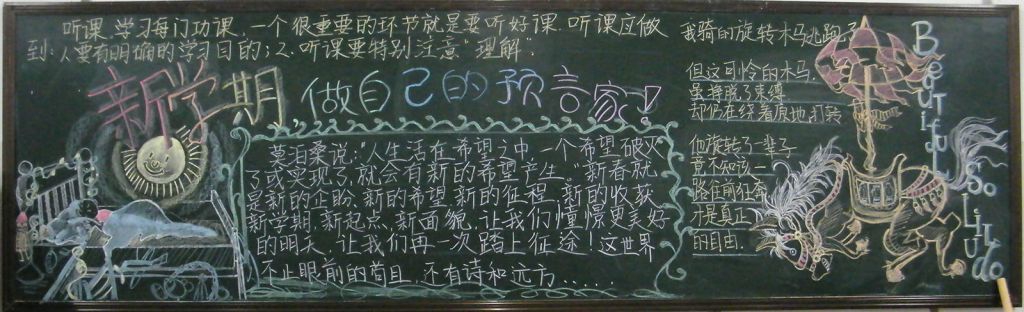 听课,学习每门功课,一个很重要的环节就是要听好课,听课应做
到:1.要有明确的学习目的;2.听课要特别注意"理解".
新学期
做自己的预言家!
莫泊桑说:"人生活在希望之中,一个希望破灭
了或实现了,就会有新的希望产生。"新春就
是新的企盼,新的希望,新的征程,新的收获
新学期,新起点,新面貌,让我们憧憬更美好
的明天,让我们再一次踏上征途!这世界
不止眼前的苟且,还有诗和远方.....
我骑的旋转木马逃跑了
但这可怜的木马,
虽挣脱了束缚
却仍在绕着原地打转
他旋转了一辈子
竟不知道
路在前狂奔
才是真正
的自由.
BeautifuL
SoLiTUdo